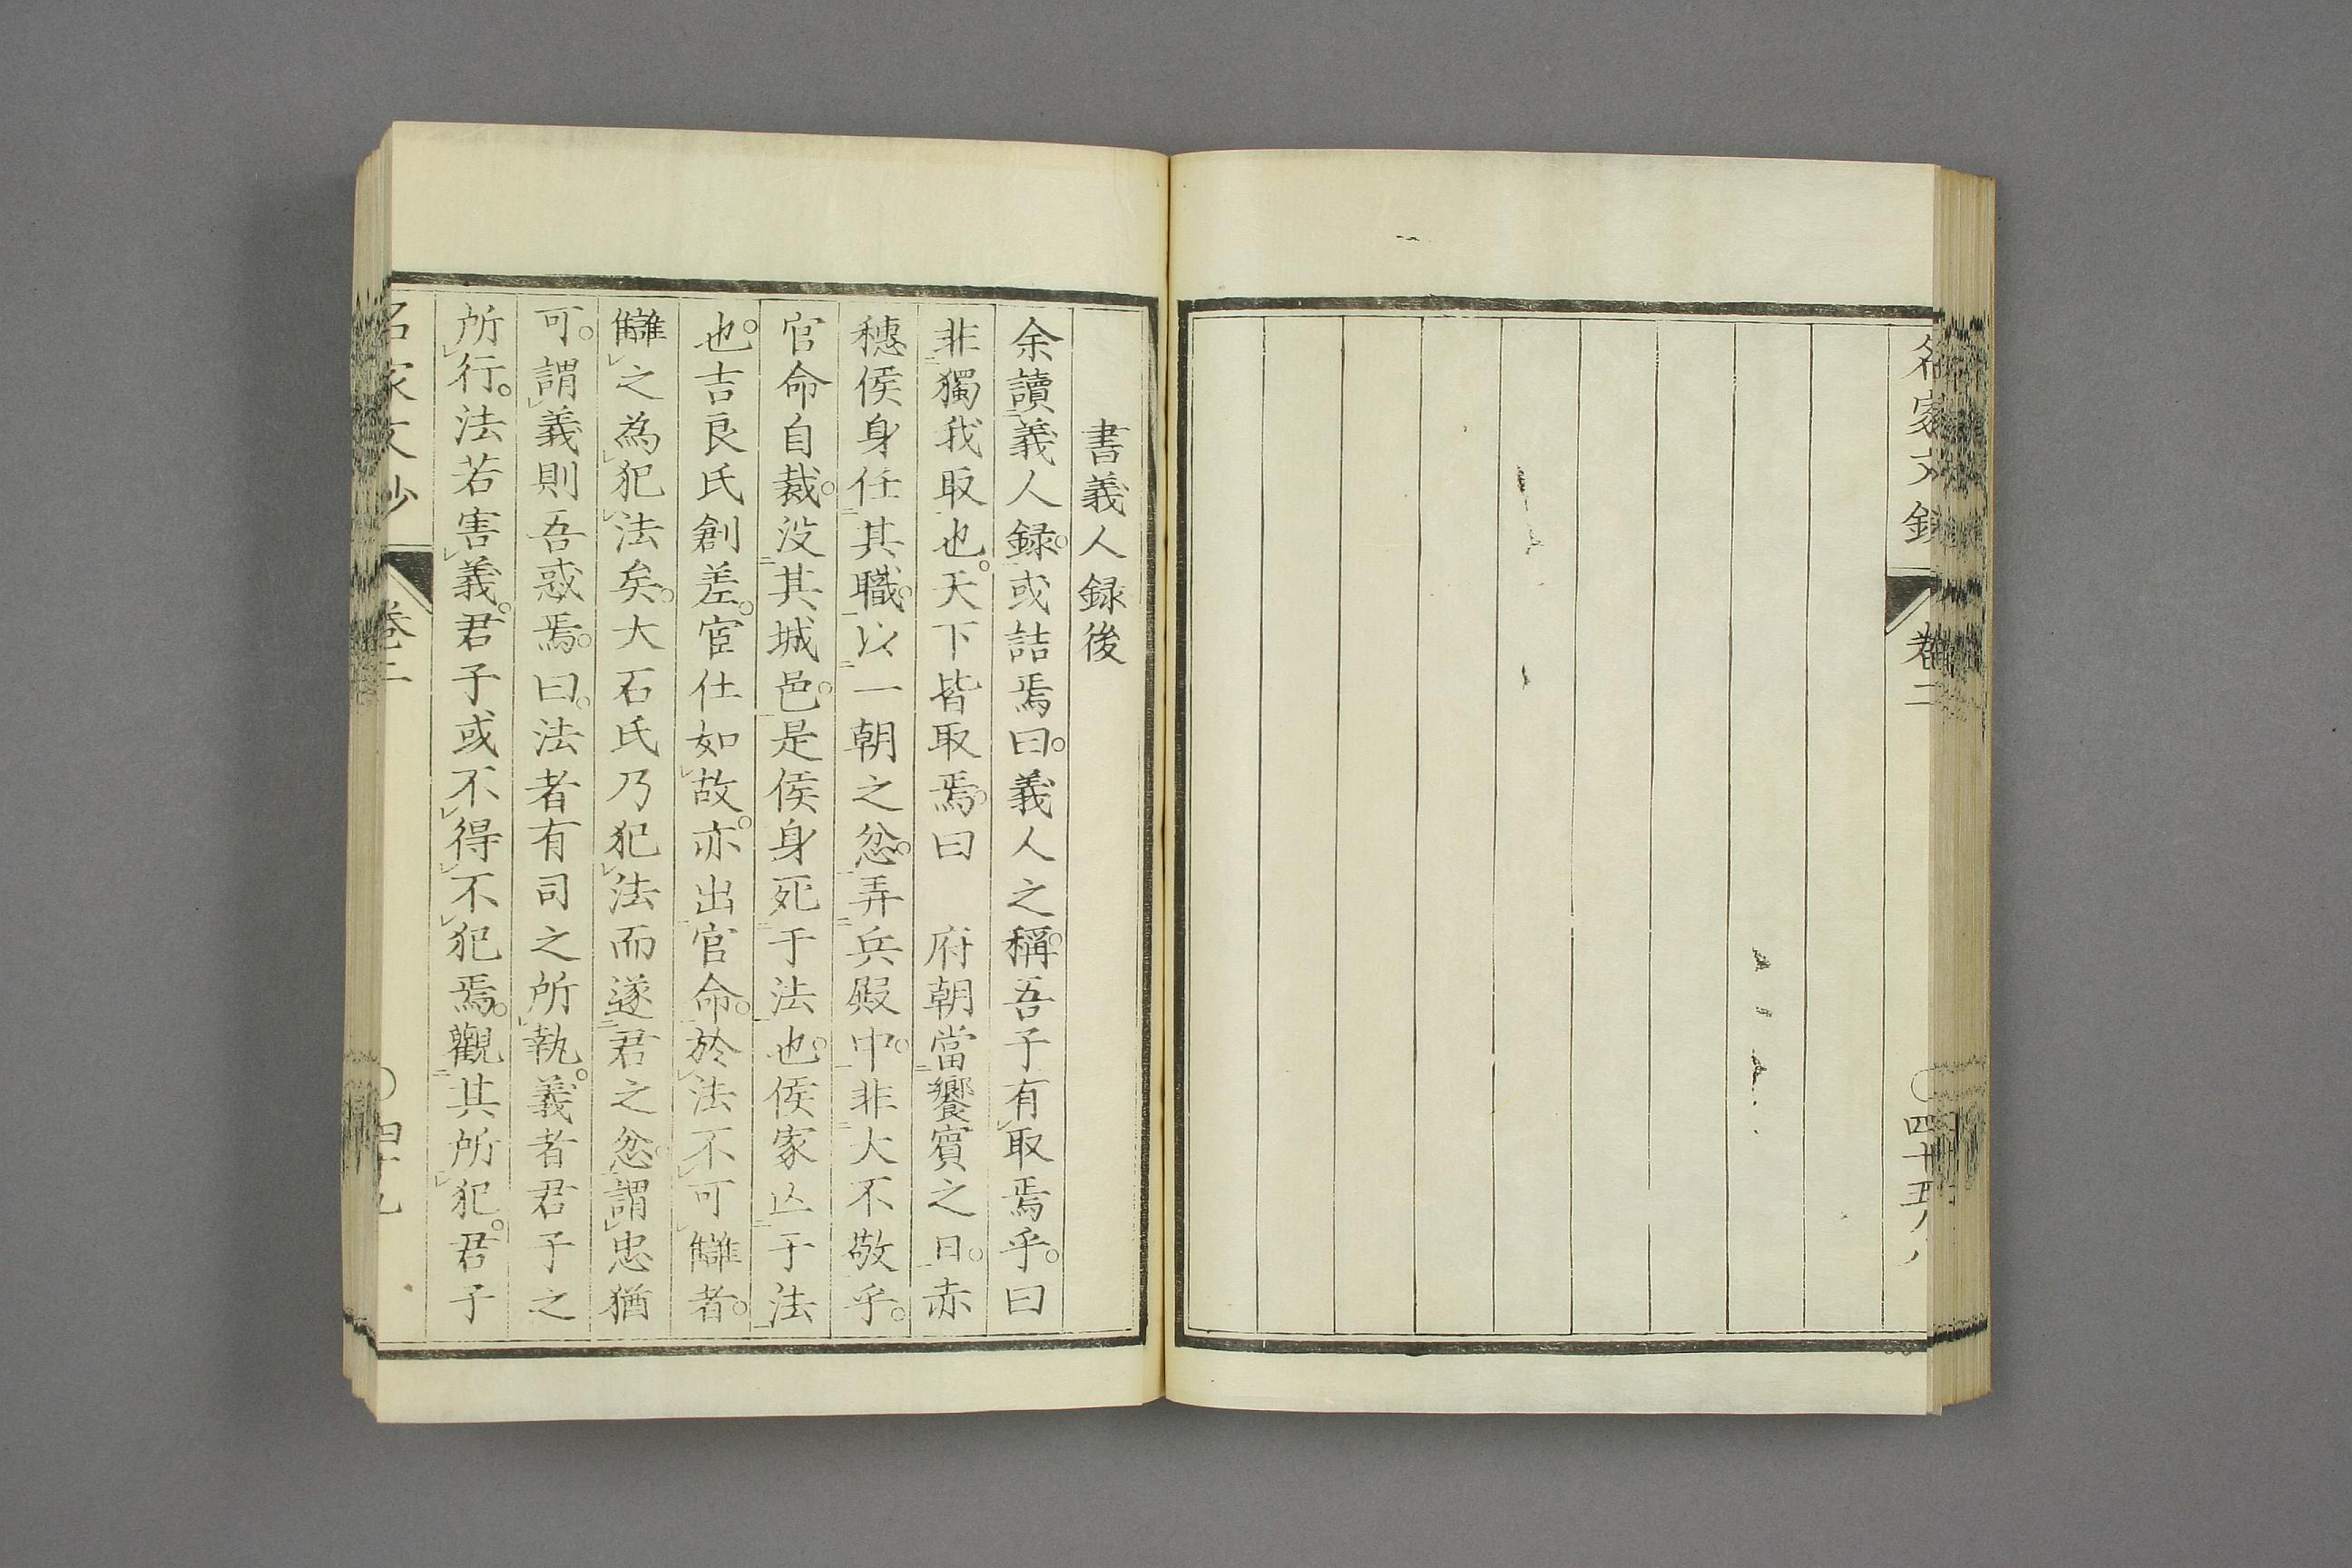 名家文鈔
卷二
四十八
書義人録後
余讀義人録。或詰焉曰。義人之稱。吾子有取焉乎。曰
非獨我取也。天下皆取焉。曰　府朝當饗賓之日。赤
穗侯身任其職。以一朝之忿。弄兵殿中。非大不敬乎。
官命自裁。没其城邑。是侯身死于法也。侯家亾于法
也。吉良氏創差。宦仕如故。亦出官命。於法不可讎者。
讎之為犯法矣。大石氏乃犯法而遂君之忿。謂忠猶
可。謂義則吾惑焉。曰。法者有司之所執。義者君子之
所行。法若害義。君子或不得不犯焉。觀其所犯。君子
名家文鈔
卷二
四十九